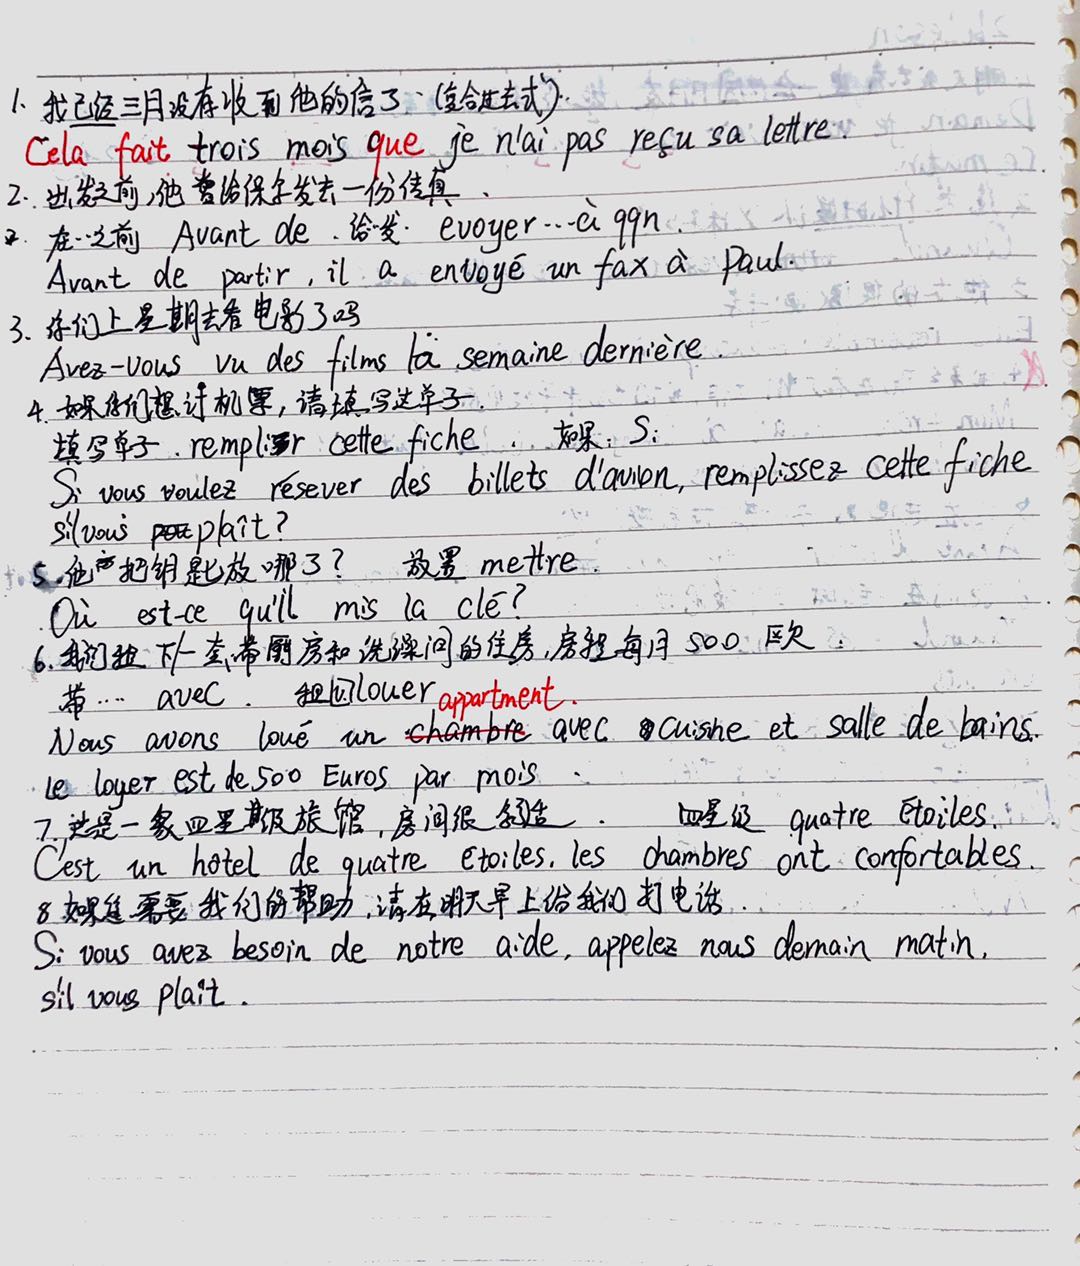 1. 我已经三月没有收到他的信了.(复合过去式).
Cela fait trois mois que je n'ai pas reçu sa lettre.
2. 出发之前,他曾给保尔发去一份传真.
在...之前 Avant de . 给..发. evoyer...à qqn.
Avant de partir, il a envoyé un fax à Paul.
3. 你们上星期去看电影了吗
Avez-vous vu des films la semaine dernière.
4. 如果你们想订机票,请填写这单子.
填写单子. remplir cette fiche . 如果: Si
Si vous voulez résever des billets d'avion, remplissez cette fiche
s'il vous plaît?
5. 他把钥匙放哪了? 放置 mettre.
Où est-ce qu'il mis la clé?
6. 我们租下一套带厨房和洗澡间的住房,房租每月 500 欧
带... avec . 租 louer appartment.
Nous avons loué un chambre avec cuisine et salle de bains.
Le loyer est de 500 Euros par mois .
7. 这是一家四星级旅馆,房间很舒适 . 四星级 quatre Etoiles.
C'est un hôtel de quatre Etoiles, les chambres ont confortables.
8. 如果您需要我们的帮助,请在明天早上给我们打电话.
Si vous avez besoin de notre aide, appelez nous demain matin,
s'il vous plaît.